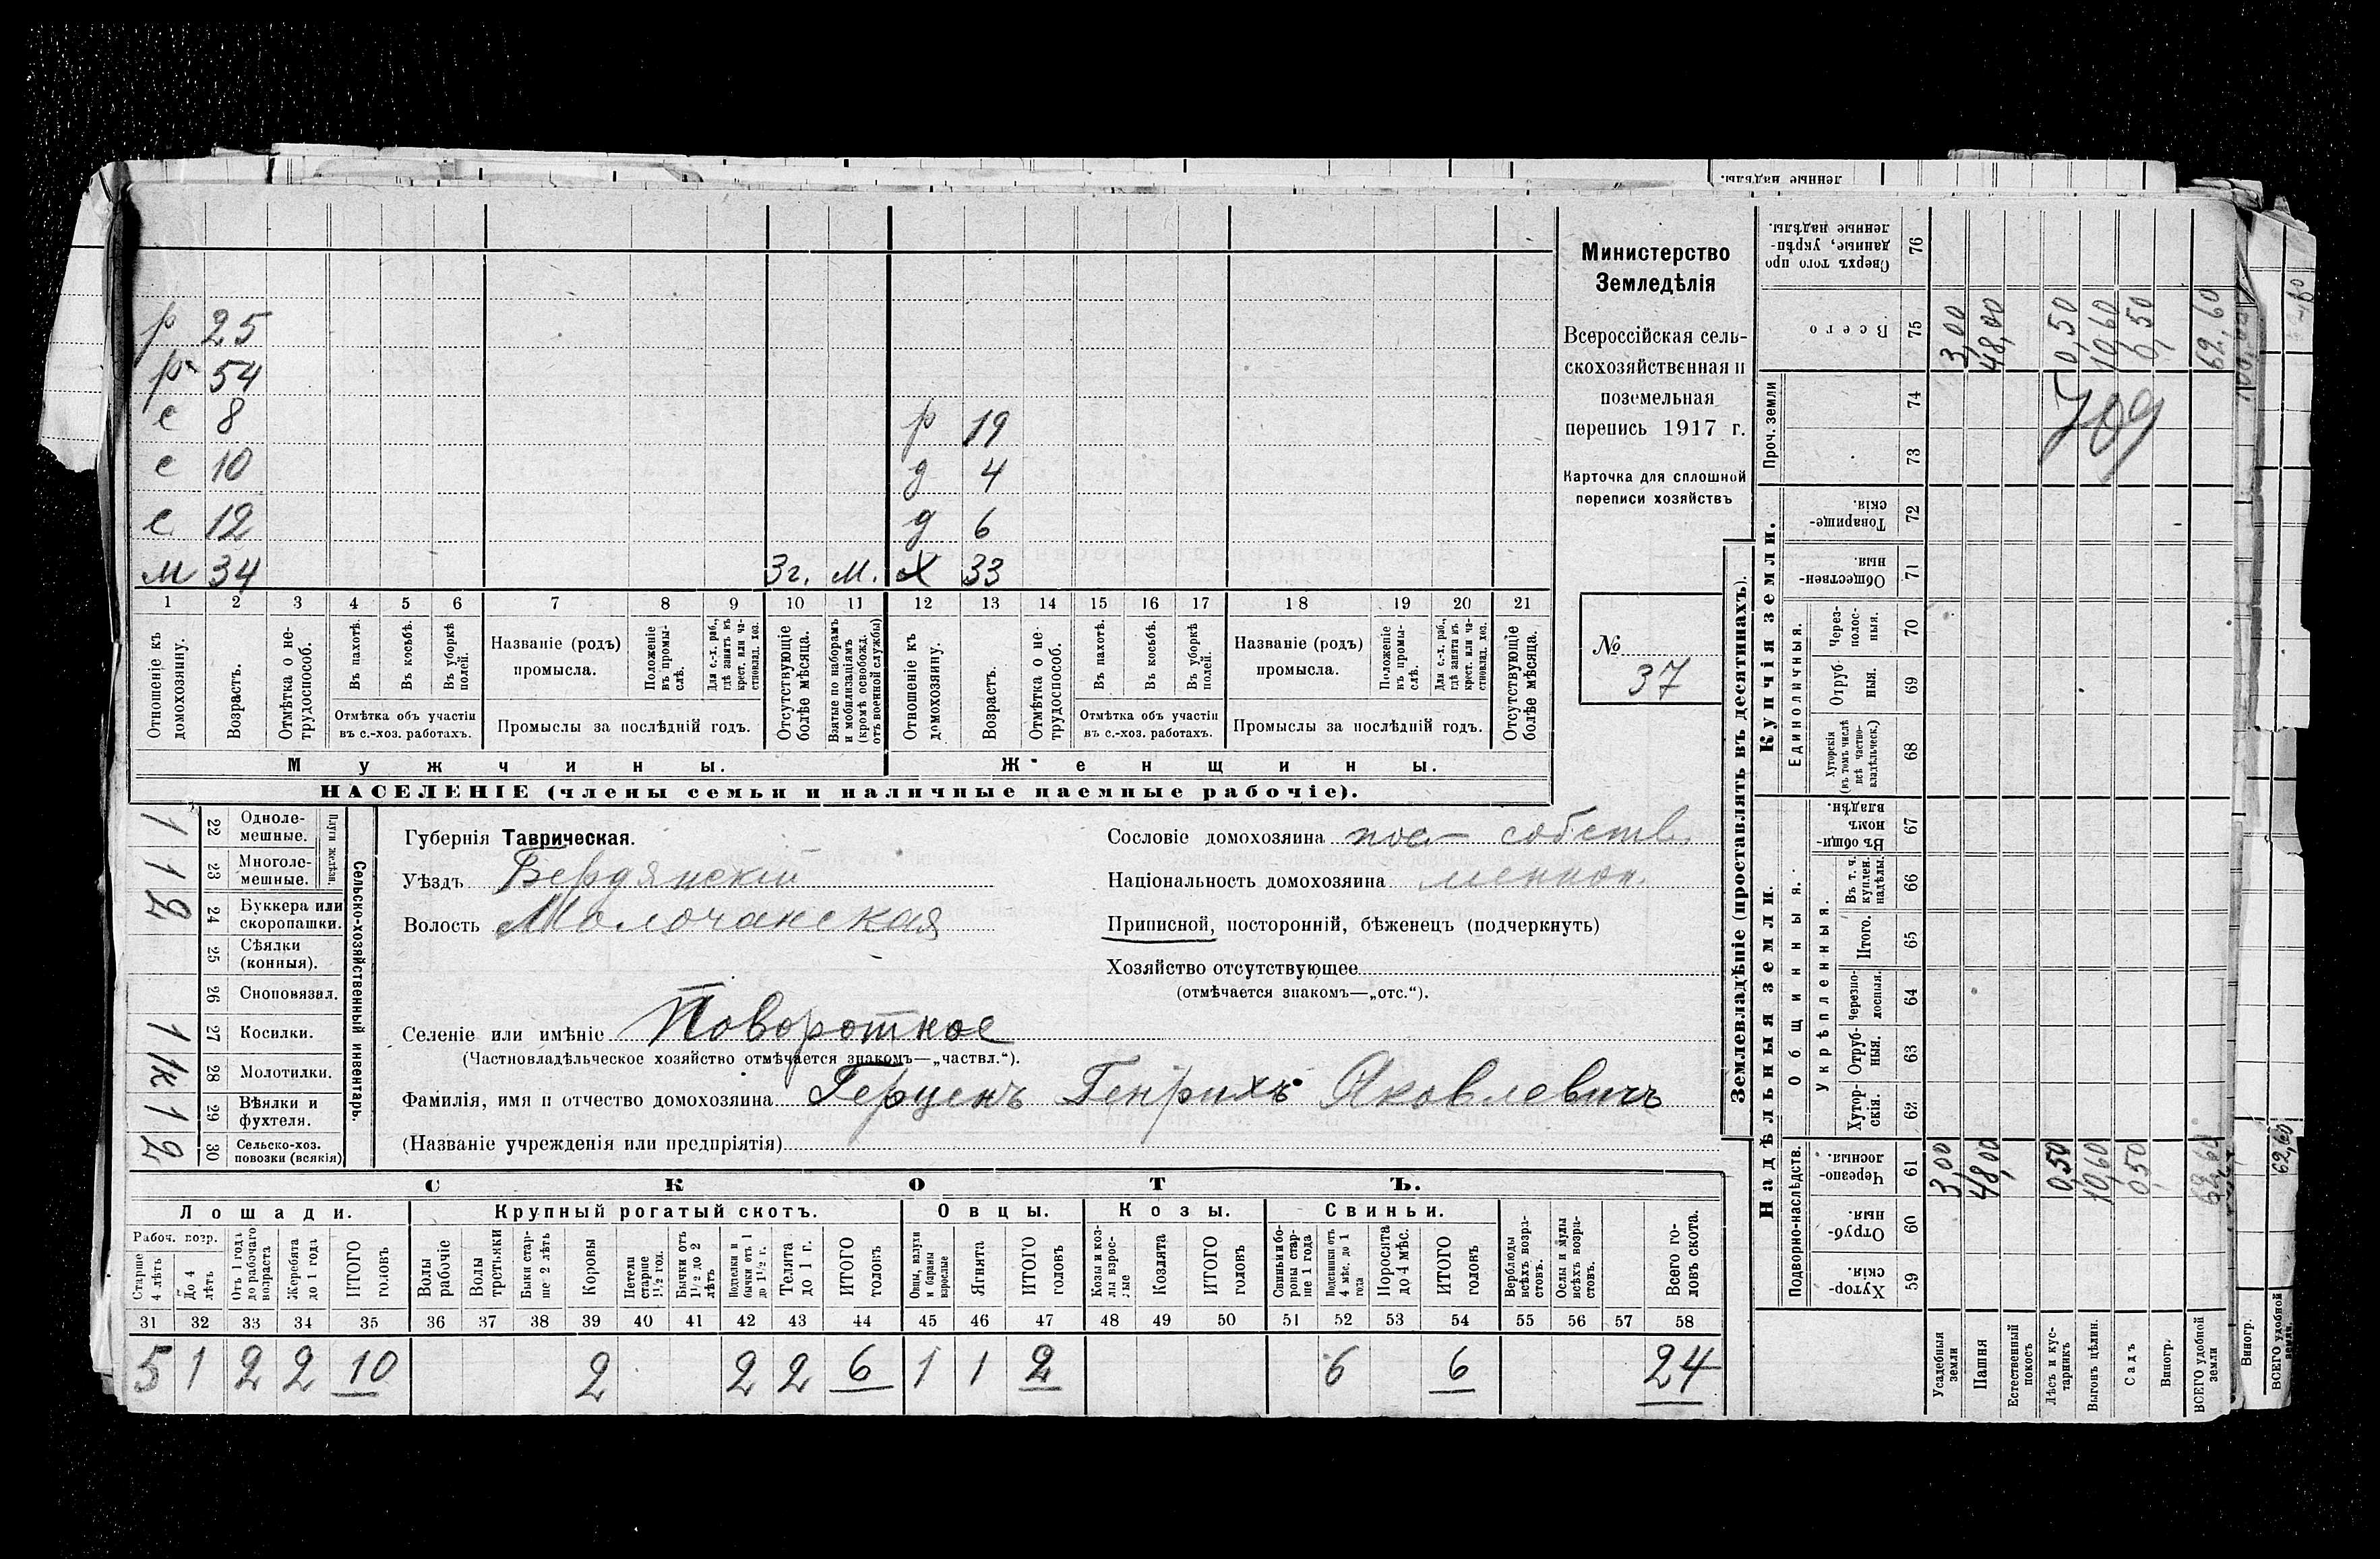 р 25
р 54
с 8
с 10
с 12
м 34 3г. м.
р 19
д 4
д 6
х 33
1 2 3 4 5 6 7 8 9 10 11 12 13 14 15 16 17 18 19 20 21
Отношеніе къ домохозяину.
Возрастъ.
Отмѣтка о нетрудоспособ.
Въ пахотѣ.
Въ косьбѣ.
Въ уборкѣ полей.
Отмѣтка объ участіи
въ с.-хоз. работахъ.
Названіе (родъ)
промысла.
Положеніе въ промыслѣ.
Для с.-х. раб., гдѣ занятъ въ крест. или частновлад. хоз.
Промыслы за послѣдній годъ.
Отсутствующіе болѣе мѣсяца.
Взятые по наборамъ и мобилизаціямъ (кромѣ освобожд. отъ военной службы)
Отношеніе къ домохозяину.
Возрастъ.
Отмѣтка о нетрудоспособ.
Въ пахотѣ.
Въ косьбѣ.
Въ уборкѣ полей.
Отмѣтка объ участіи
въ с.-хоз. работахъ.
Названіе (родъ)
промысла.
Положеніе въ промыслѣ.
Для с.-х. раб., гдѣ занята въ крест. или частновлад. хоз.
Промыслы за послѣдній годъ.
Отсутствующіе болѣе мѣсяца.
Мужчины.
Женщины.
НАСЕЛЕНІЕ (члены семьи и наличные наемные рабочіе).
Министерство
Земледѣлія
Всероссійская сель-
скохозяйственная и
поземельная
перепись 1917 г.
Карточка для сплошной
переписи хозяйствъ
№
37
Сельско-хозяйственный инвентарь.
Плуги желѣзн.
1 22 Однолемешные.
1 23 Многолемешные.
2 24 Буккера или скоропашки.
25 Сѣялки (конныя).
26 Сноповязал.
1 27 Косилки.
1к 28 Молотилки.
1 29 Вѣялки и фухтеля.
2 30 Сельско-хоз. повозки (всякія)
Губернія Таврическая.
Уѣздъ Бердянскій
Волость Молочанская
Селеніе или имѣніе Поворотное
(Частновладѣльческое хозяйство отмѣчается знакомъ—„частвл.“).
Фамилія, имя и отчество домохозяина Герценъ Генрихъ Яковлевичъ
(Названіе учрежденія или предпріятія)
Сословіе домохозяина пос— собств.
Національность домохозяина меннон.
Приписной, посторонній, бѣженецъ (подчеркнуть)
Хозяйство отсутствующее
(отмѣчается знакомъ—„отс.“).
СКОТЪ.
Лошади.
Крупный рогатый скотъ.
Овцы.
Козы.
Свиньи.
Рабоч. возр.
Старше 4 лѣтъ
До 4 лѣтъ
Отъ 1 года до рабочаго возраста
Жеребята до 1 года
ИТОГО головъ
Волы рабочіе
Волы третьяки
Быки старше 2 лѣтъ
Коровы
Нетели старше 1½ год.
Бычки отъ 1½ до 2 лѣтъ
Подтелки и бычки отъ 1 до 1½ г.
Телята до 1 г.
ИТОГО головъ
Овцы, валухи и бараны взрослые
Ягнята
ИТОГО головъ
Козы и козлы взрослые
Козлята
ИТОГО головъ
Свиньи и боровы старше 1 года
Подсвинки отъ 4 мѣс. до 1 года
Поросята до 4 мѣс.
ИТОГО головъ
Верблюды всѣхъ возрастовъ.
Ослы и мулы всѣхъ возрастовъ.
Всего головъ скота.
31 32 33 34 35 36 37 38 39 40 41 42 43 44 45 46 47 48 49 50 51 52 53 54 55 56 57 58
5 1 2 2 10 2 2 2 6 1 1 2 6 6 24
Землевладѣніе (проставлять въ десятинахъ).
Надѣльныя земли.
Купчія земли.
Проч. земли
Подворно-наслѣдств.
Общинныя.
Укрѣпленныя.
Единоличныя.
Хуторскія 59
Отрубныя. 60
Черезполосныя. 61
Хуторскія. 62
Отрубныя. 63
Черезполосныя. 64
Итого. 65
Въ т. ч. куплен. надѣлы. 66
Въ общинномъ владѣн. 67
Хуторскія (въ томъ числѣ всѣ частновладѣльческ.) 68
Отрубныя. 69
Черезполосныя. 70
Общественныя. 71
Товарищескія. 72
73
74
Всего 75
Сверхъ того проданные, укрѣпленные надѣлы. 76
Усадебныя земли 3,00 3,00
Пашня 48,00 48,00
Естественный покосъ
Лѣсъ и кустарникъ 0,50 0,50
Выгонъ цѣлин. 10,60 10,60
Садъ 0,50 0,50
Виногр.
ВСЕГО удобной земли 62,60 62,60
Виногр.
ВСЕГО удобной земли.
62,60
ленные надѣлы.